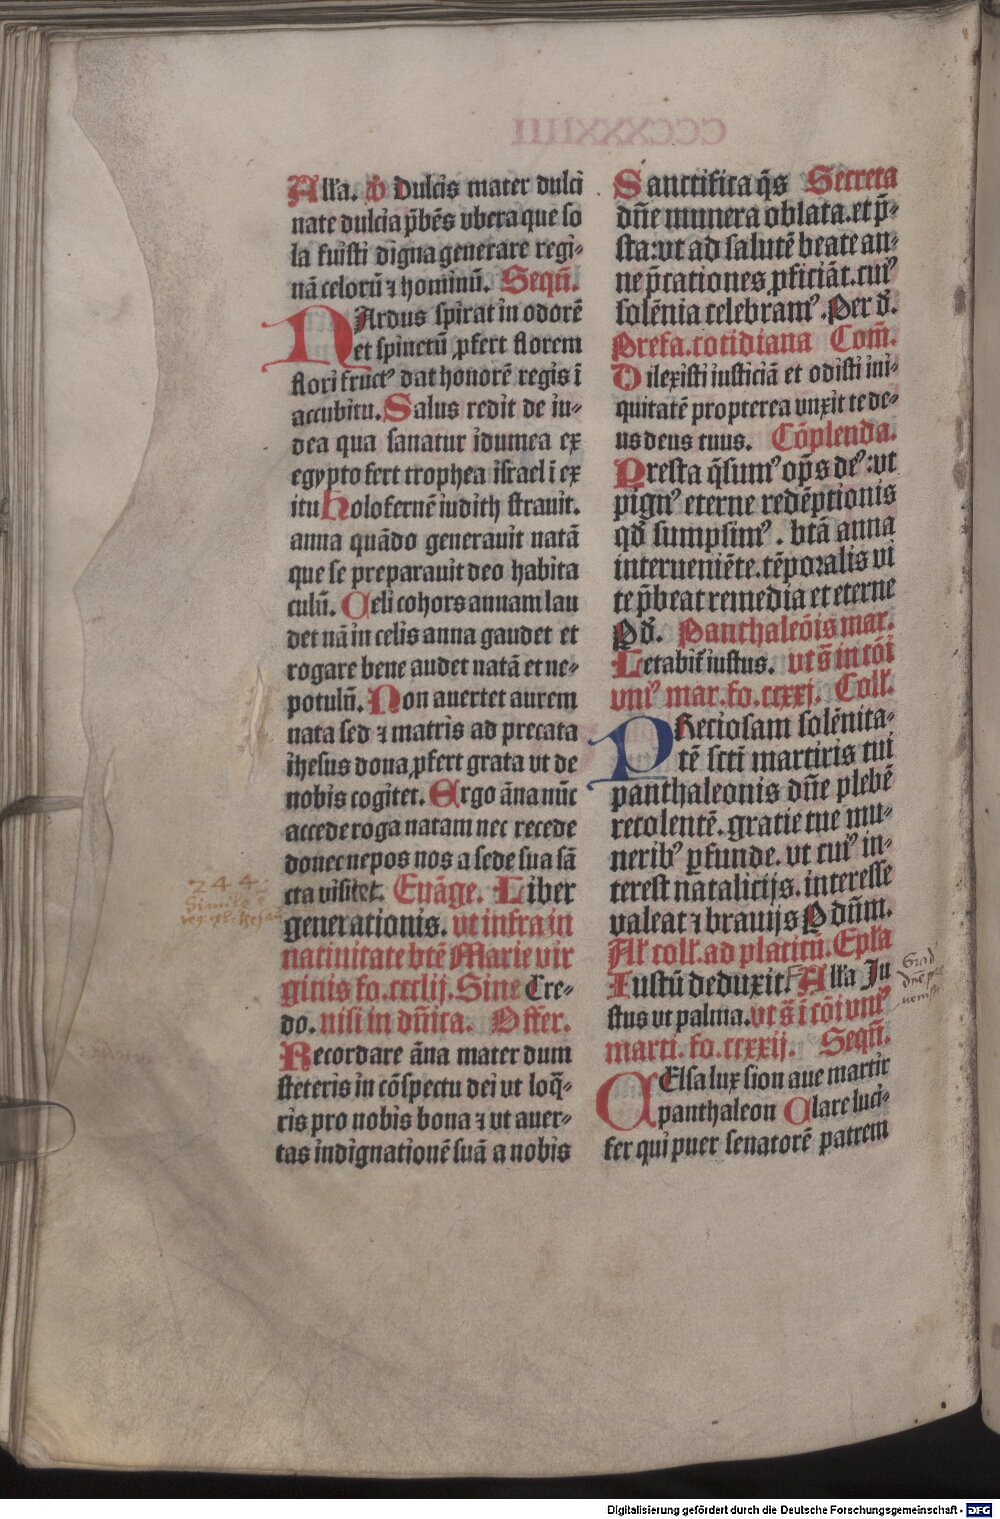 Alľa. O Dulcis mater dulci
nate dulcia p̄bēs vbera que so
la fuisti digna generare regi⸗
nā celorū ⁊ hominū. Seqū.
NArdus spirat in odorē
et spinetū ꝓfert florem
flori fructꝰ dat honorē regis ī
accubitu. Salus redit de iu⸗
dea qua sanatur idumea ex
egypto fert trophea israel ī ex
itu Holofernē iudith strauit.
anna quādo generauit natā
que se preparauit deo habita
culū. Celi cohors annam lau
det nā in celis anna gaudet et
rogare bene audet natā et ne⸗
potulū. Non auertet aurem
nata sed ⁊ matris ad precata
ihesus dona ꝓfert grata vt de
nobis cogitet. Ergo āna nūc
accede roga natam nec recede
donec nepos nos a sede sua sā
cta visitet. Euāge. Liber
generationis. vt infra in
natiuitate btē Marie vir
ginis fo. ccclij. Sine Cre⸗
do. nisi in dn̄ica. Offer.
Recordare āna mater dum
steteris in cōspectu dei vt loq̄⸗
ris pro nobis bona ⁊ vt auer⸗
tas indignationē suā a nobis
Sanctifica q̄s Secreta
dn̄e munera oblata. et p̄⸗
sta: vt ad salutē beate an⸗
ne p̄cationes ꝓficiāt. cuiꝰ
solēnia celebramꝰ. Per d̄.
Prefa. cotidiana Com̄.
Dilexisti iusticiā et odisti ini⸗
quitatē propterea vnxit te de⸗
us deus tuus. Cōplenda.
Presta q̄sumꝰ op̄s deꝰ: vt
pignꝰ eterne redēptionis
qd̄ sumpsimꝰ. btā anna
interueniēte. tēporalis vi
te p̄beat remedia et eterne
Pd̄. Panthaleōis mar.
Letabit̄ iustus. vt s̄ in cōi
vniꝰ mar. fo. ccxxj. Coll̄.
PReciosam solēnita⸗
tē scti martiris tui
panthaleonis dn̄e plebē
recolentē. gratie tue mu⸗
neribꝰ ꝑfunde. vt cuiꝰ in⸗
terest natalicijs. interesse
valeat ⁊ brauijs Pdūm.
Al̄ coll̄. ad placitū. Epľa
Iustū deduxit. Alľa Ju
stus vt palma. vt s̄ ī cōi vniꝰ
marti. fo. ccxxij. Seqū.
CElsa lux sion aue martir
panthaleon Clare luci⸗
fer qui puer senatorē patrem
244
Digitalisierung gefördert durch die Deutsche Forschungsgemeinschaft - DFG